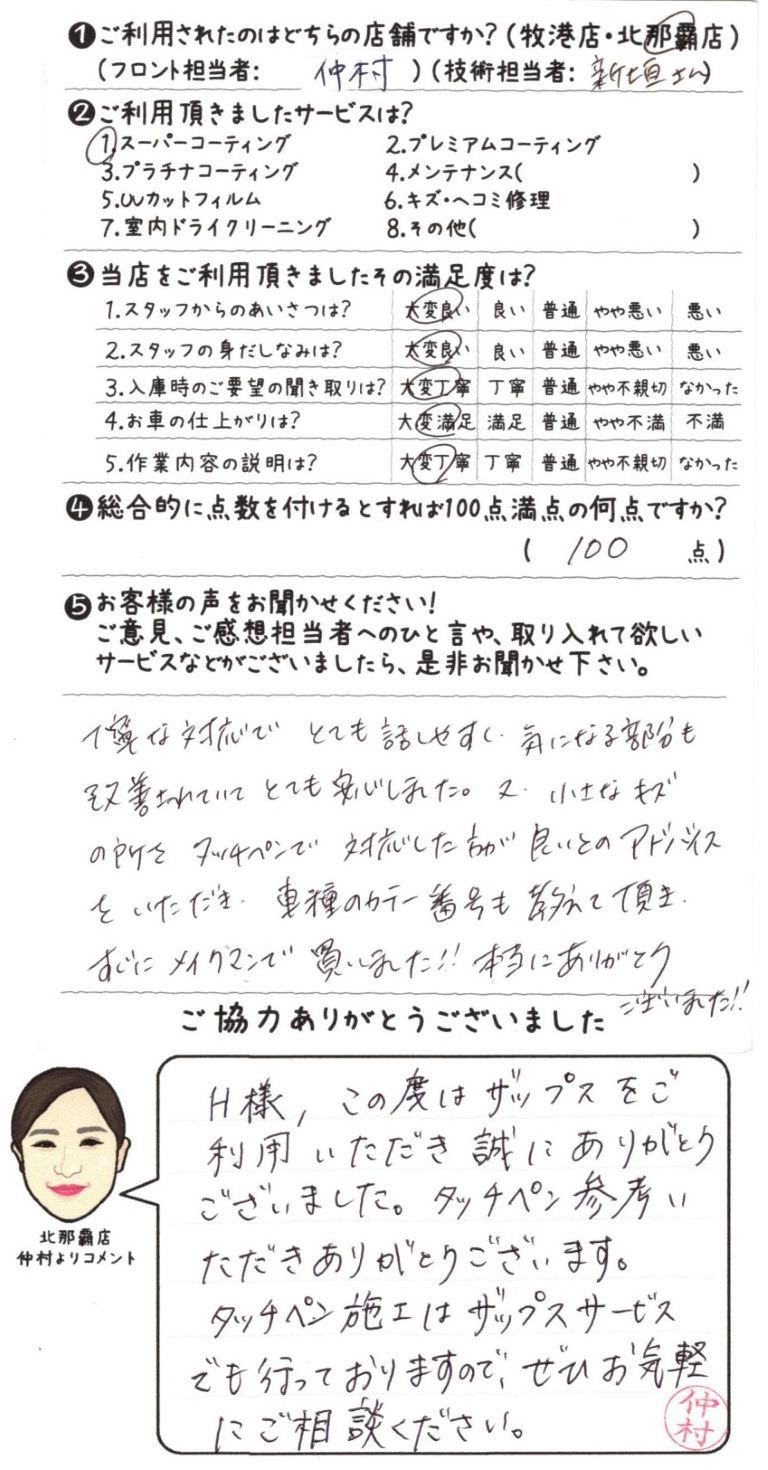 ❶ご利用されたのはどちらの店舗ですか?(牧港店・北那覇店)
(フロント担当者: 仲村 )(技術担当者: 新垣さん)
❷ご利用頂きましたサービスは?
1.スーパーコーティング 2.プレミアムコーティング
3.プラチナコーティング 4.メンテナンス( )
5.UVカットフィルム 6.キズ・ヘコミ修理
7.室内ドライクリーニング 8.その他( )
❸当店をご利用頂きましたその満足度は?
1.スタッフからのあいさつは? 大変良い 良い 普通 やや悪い 悪い
2.スタッフの身だしなみは? 大変良い 良い 普通 やや悪い 悪い
3.入庫時のご要望の聞き取りは? 大変丁寧 丁寧 普通 やや不親切 なかった
4.お車の仕上がりは? 大変満足 満足 普通 やや不満 不満
5.作業内容の説明は? 大変丁寧 丁寧 普通 やや不親切 なかった
❹総合的に点数を付けるとすれば100点満点の何点ですか?
( 100 点)
❺お客様の声をお聞かせください!
ご意見、ご感想担当者へのひと言や、取り入れて欲しい
サービスなどがございましたら、是非お聞かせ下さい。
丁寧な対応で とても話しやすく、気になる部分も
改善されていて とても安心しました。又、小さなキズ
の所を タッチペンで 対応した方が 良いとの アドバイス
を いただき、車種のカラー番号も 教えて頂き、
すぐに メイクマンで 買いました!! 本当にありがとう
ございました!!
ご協力ありがとうございました
H様, この度は ザップス をご
利用 いただき 誠に ありがとう
ございました。タッチペン参考い
ただきありがとうございます。
タッチペン施工はザップスサービス
でも行っておりますので、ぜひお気軽
にご相談ください。
仲村
北那覇店
仲村よりコメント